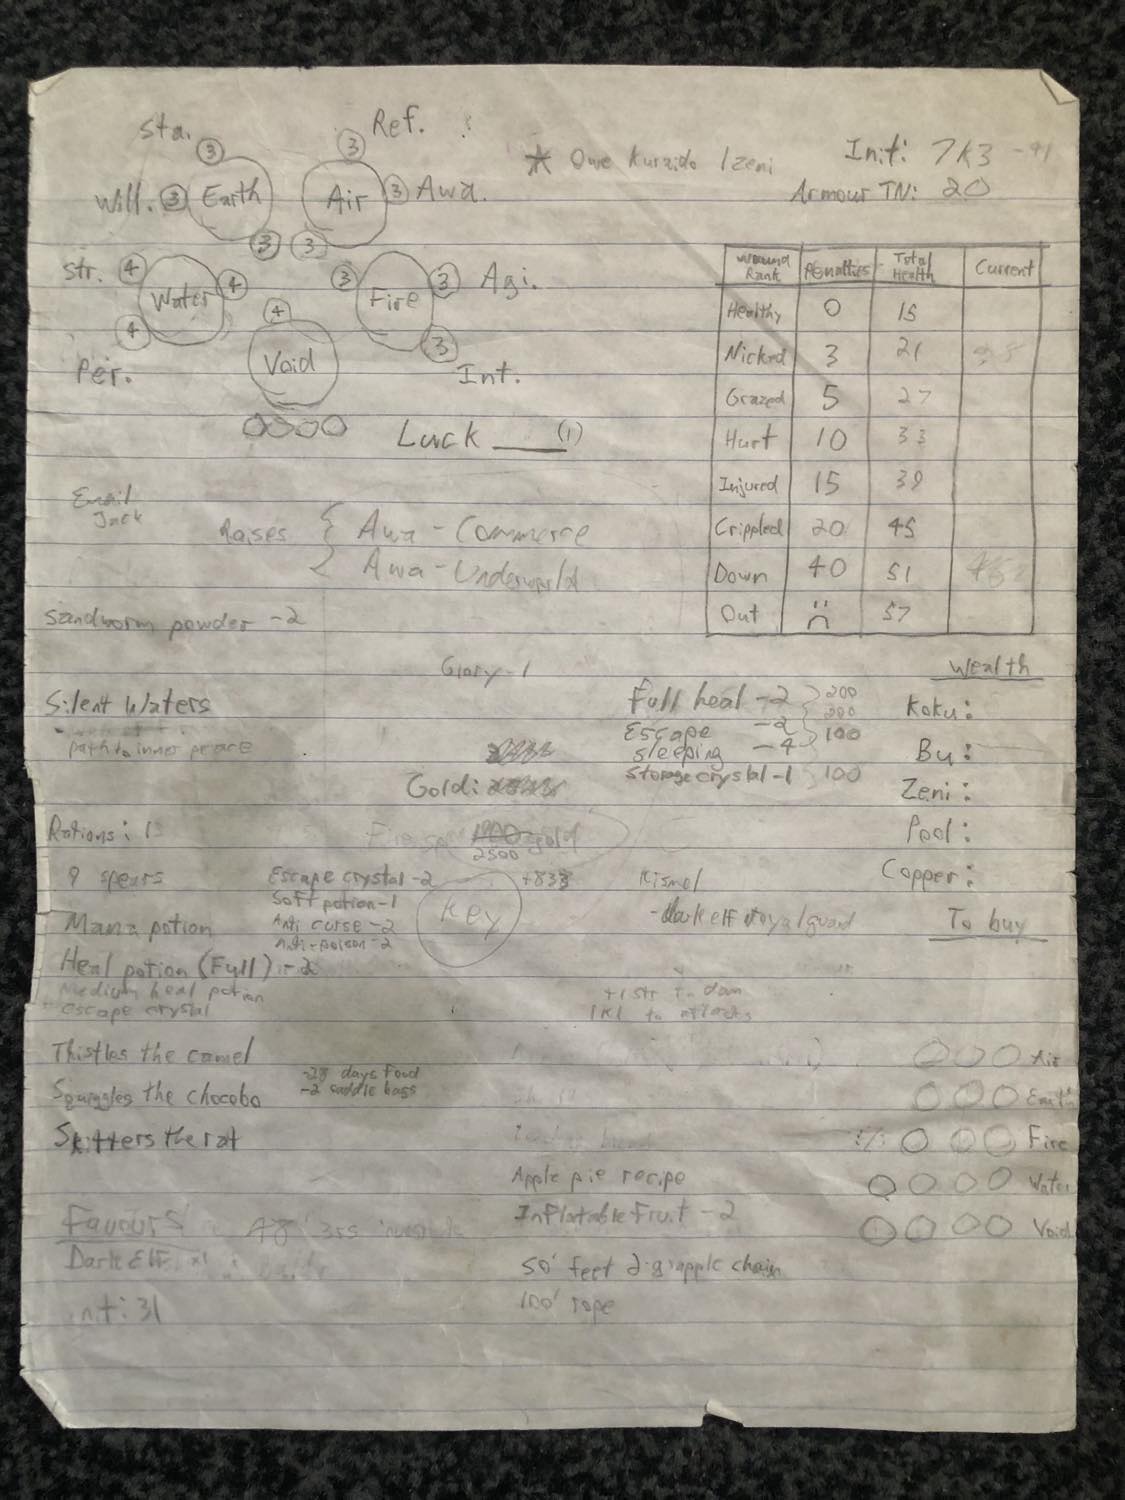 Sta. Ref.
3 3
* Owe Kuraido 1 zeni
Init: 7K3
Armour TN: 20
Will. 3 Earth Air 3 Awa.
3 3
Str. 4 Water 4 3 Fire 3 Agi.
4 4 3
Per. Void Int.
Luck ____ (1)
Wound Rank Penalties Total Health Current
Healthy 0 15
Nicked 3 21
Grazed 5 27
Hurt 10 33
Injured 15 39
Crippled 20 45
Down 40 51
Out :( 57
Email
Jack
Raises { Awa - Commerce
Awa - Underworld
Sandworm powder -2
Glory - 1
Silent Waters
path to inner peace
Full heal -2 200
200
Escape -2
sleeping -4 100
Storage crystal -1 100
Gold:
Wealth
Koku:
Bu:
Zeni:
Pool:
Copper:
To buy
Rations: 1
gold
2500
9 spears
Escape crystal -2 +833
Soft potion -1
Anti curse -2
Anti-poison -2
Key
Kismol
-dark elf royal guard
Mana potion
Heal potion (Full) - 2
Medium heal potion
escape crystal
1K1 to attacks
Thistles the camel
Squiggles the chocobo
-28 days food
-2 saddle bags
Skitters the rat
Air
Earth
Fire
Water
Void
Apple pie recipe
Inflatable Fruit -2
50' feet 2-grapple chain
100' rope
Favours
Dark Elf x1